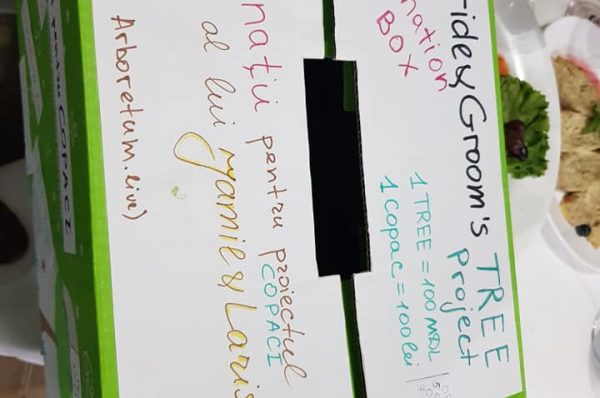 ide & Groom's TREE
nation project
BOX
1 TREE = 100 MDL
1 copac = 100 lei
nații pentru proiectul
COPACI
al lui Jamie & Laris
Arboretum.live)
COPACI